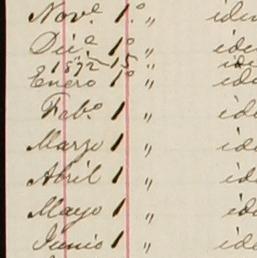 Nov.e 1.o „ idem
Dic.e 1.o „ ide
1872 15 „ ide
Enero 1.o „ ide
Feb.o 1 „ ide
Marzo 1 „ ide
Abril 1 „ ide
Mayo 1 „ ide
Junio 1 „ ide